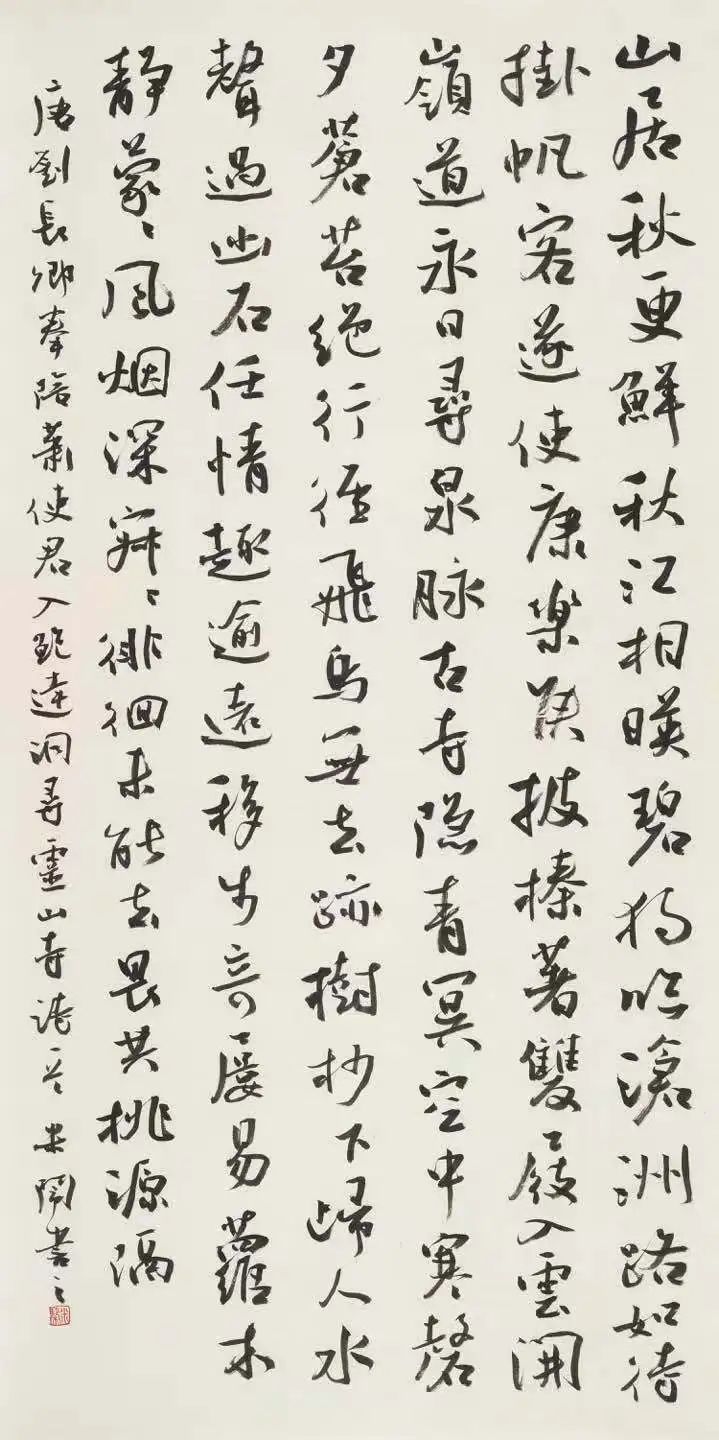 山居秋更鮮秋江相暎碧獨臨滄洲路如待
掛帆客遂使康樂侯披榛著雙屐入雲開
嶺道永日尋泉脉古寺隐青冥空中寒磬
夕蒼苔絕行徑飛鳥無去跡樹杪下歸人水
聲過幽石任情趣逾遠移步奇屢易蘿木
靜蒙〻風烟深寂〻徘徊未能去畏共桃源隔
唐劉長卿奉陪蕭使君入鮑達洞尋靈山寺詩一首 書之